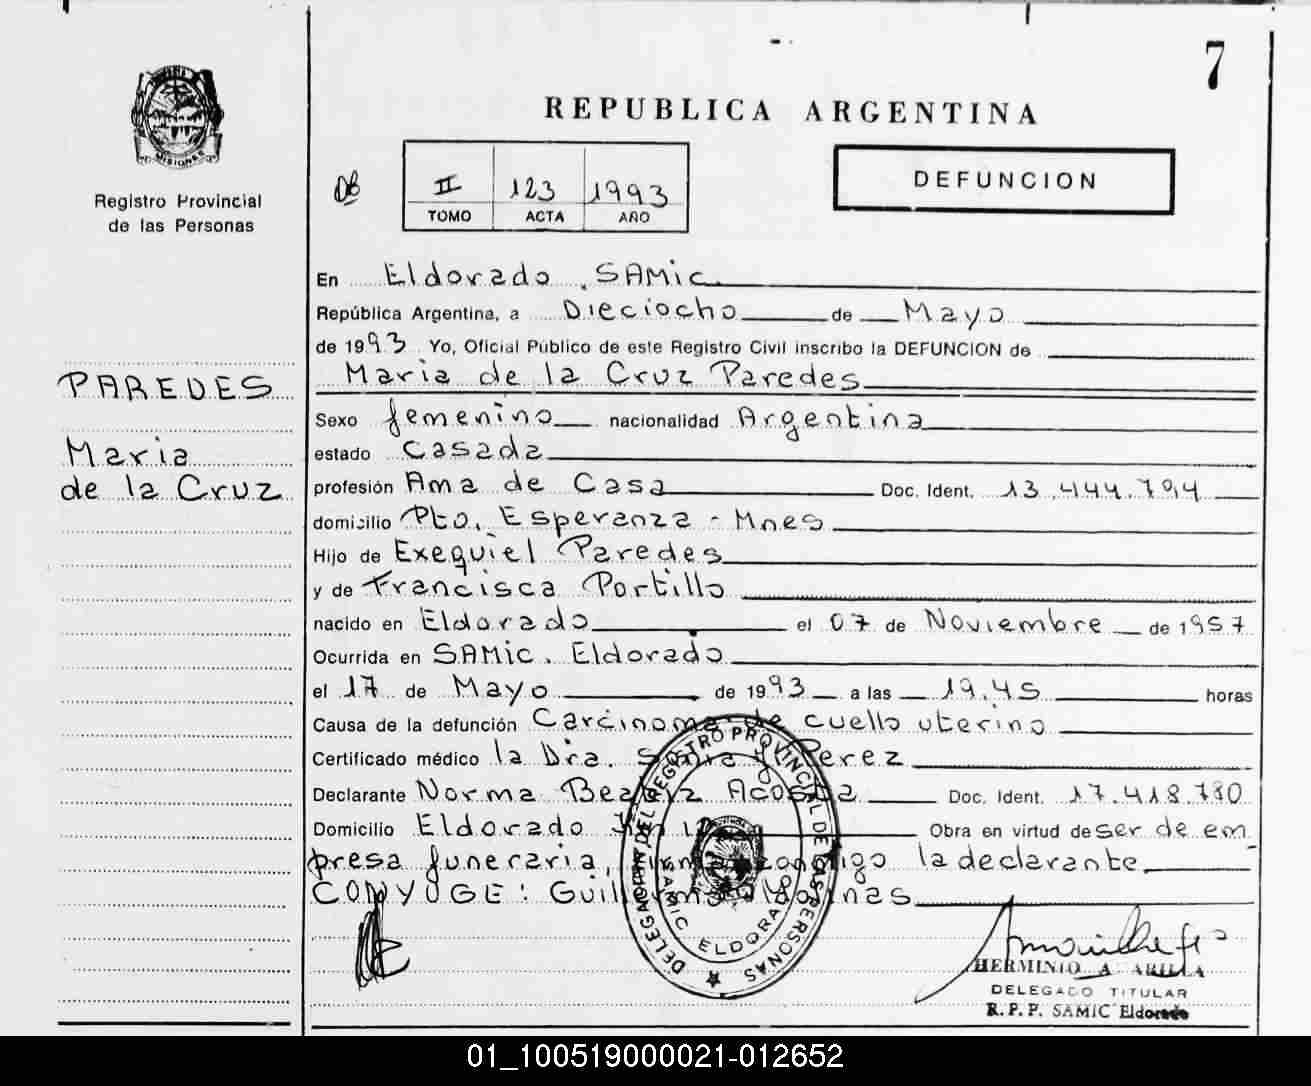 7
REPUBLICA ARGENTINA
MISIONES
Registro Provincial
de las Personas
II 123 1993
TOMO ACTA AÑO
DEFUNCION
PAREDES
Maria
de la Cruz
En Eldorado, SAMic.
República Argentina, a Dieciocho de Mayo
de 1993 Yo, Oficial Público de este Registro Civil inscribo la DEFUNCION de
Maria de la Cruz Paredes
Sexo femenino nacionalidad Argentina
estado casada
profesión Ama de Casa Doc. Ident. 13.444.794
domicilio Pto. Esperanza - Mnes
Hijo de Exequiel Paredes
y de Francisca Portillo
nacido en Eldorado el 07 de Noviembre de 1957
Ocurrida en SAMic. Eldorado
el 17 de Mayo de 1993 a las 19.45 horas
Causa de la defunción Carcinoma de cuello uterino
Certificado médico la Dra. Perez
Declarante Norma Beatriz Acosta Doc. Ident. 17.418.780
Domicilio Eldorado Obra en virtud de ser de em
presa funeraria, firma conmigo la declarante.
CONYUGE: Guillermo
DELEGACION DEL REGISTRO PROVINCIAL DE LAS PERSONAS
SAMIC ELDORADO
HERMINIO A. ARILLA
DELEGADO TITULAR
R.P.P. SAMIC Eldorado
01_100519000021-012652